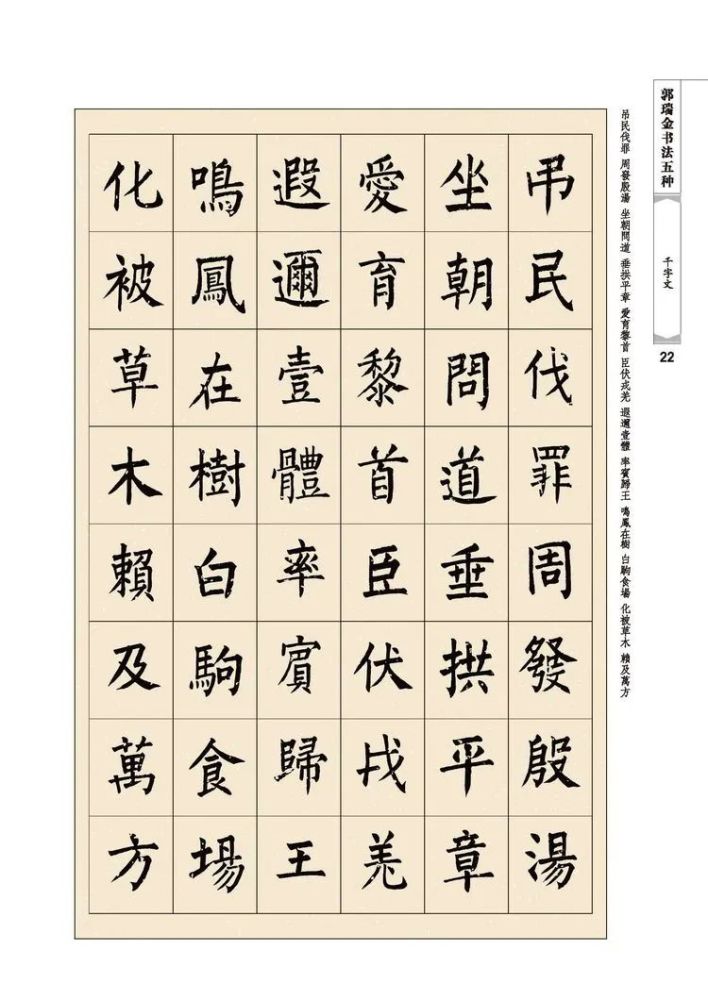 郭瑞金书法五种
千字文
22
吊民伐罪 周發殷湯 坐朝問道 垂拱平章 愛育黎首 臣伏戎羌 遐邇壹體 率賓歸王 鳴鳳在樹 白駒食場 化被草木 賴及萬方
吊民伐罪周發殷湯
坐朝問道垂拱平章
愛育黎首臣伏戎羌
遐邇壹體率賓歸王
鳴鳳在樹白駒食場
化被草木賴及萬方